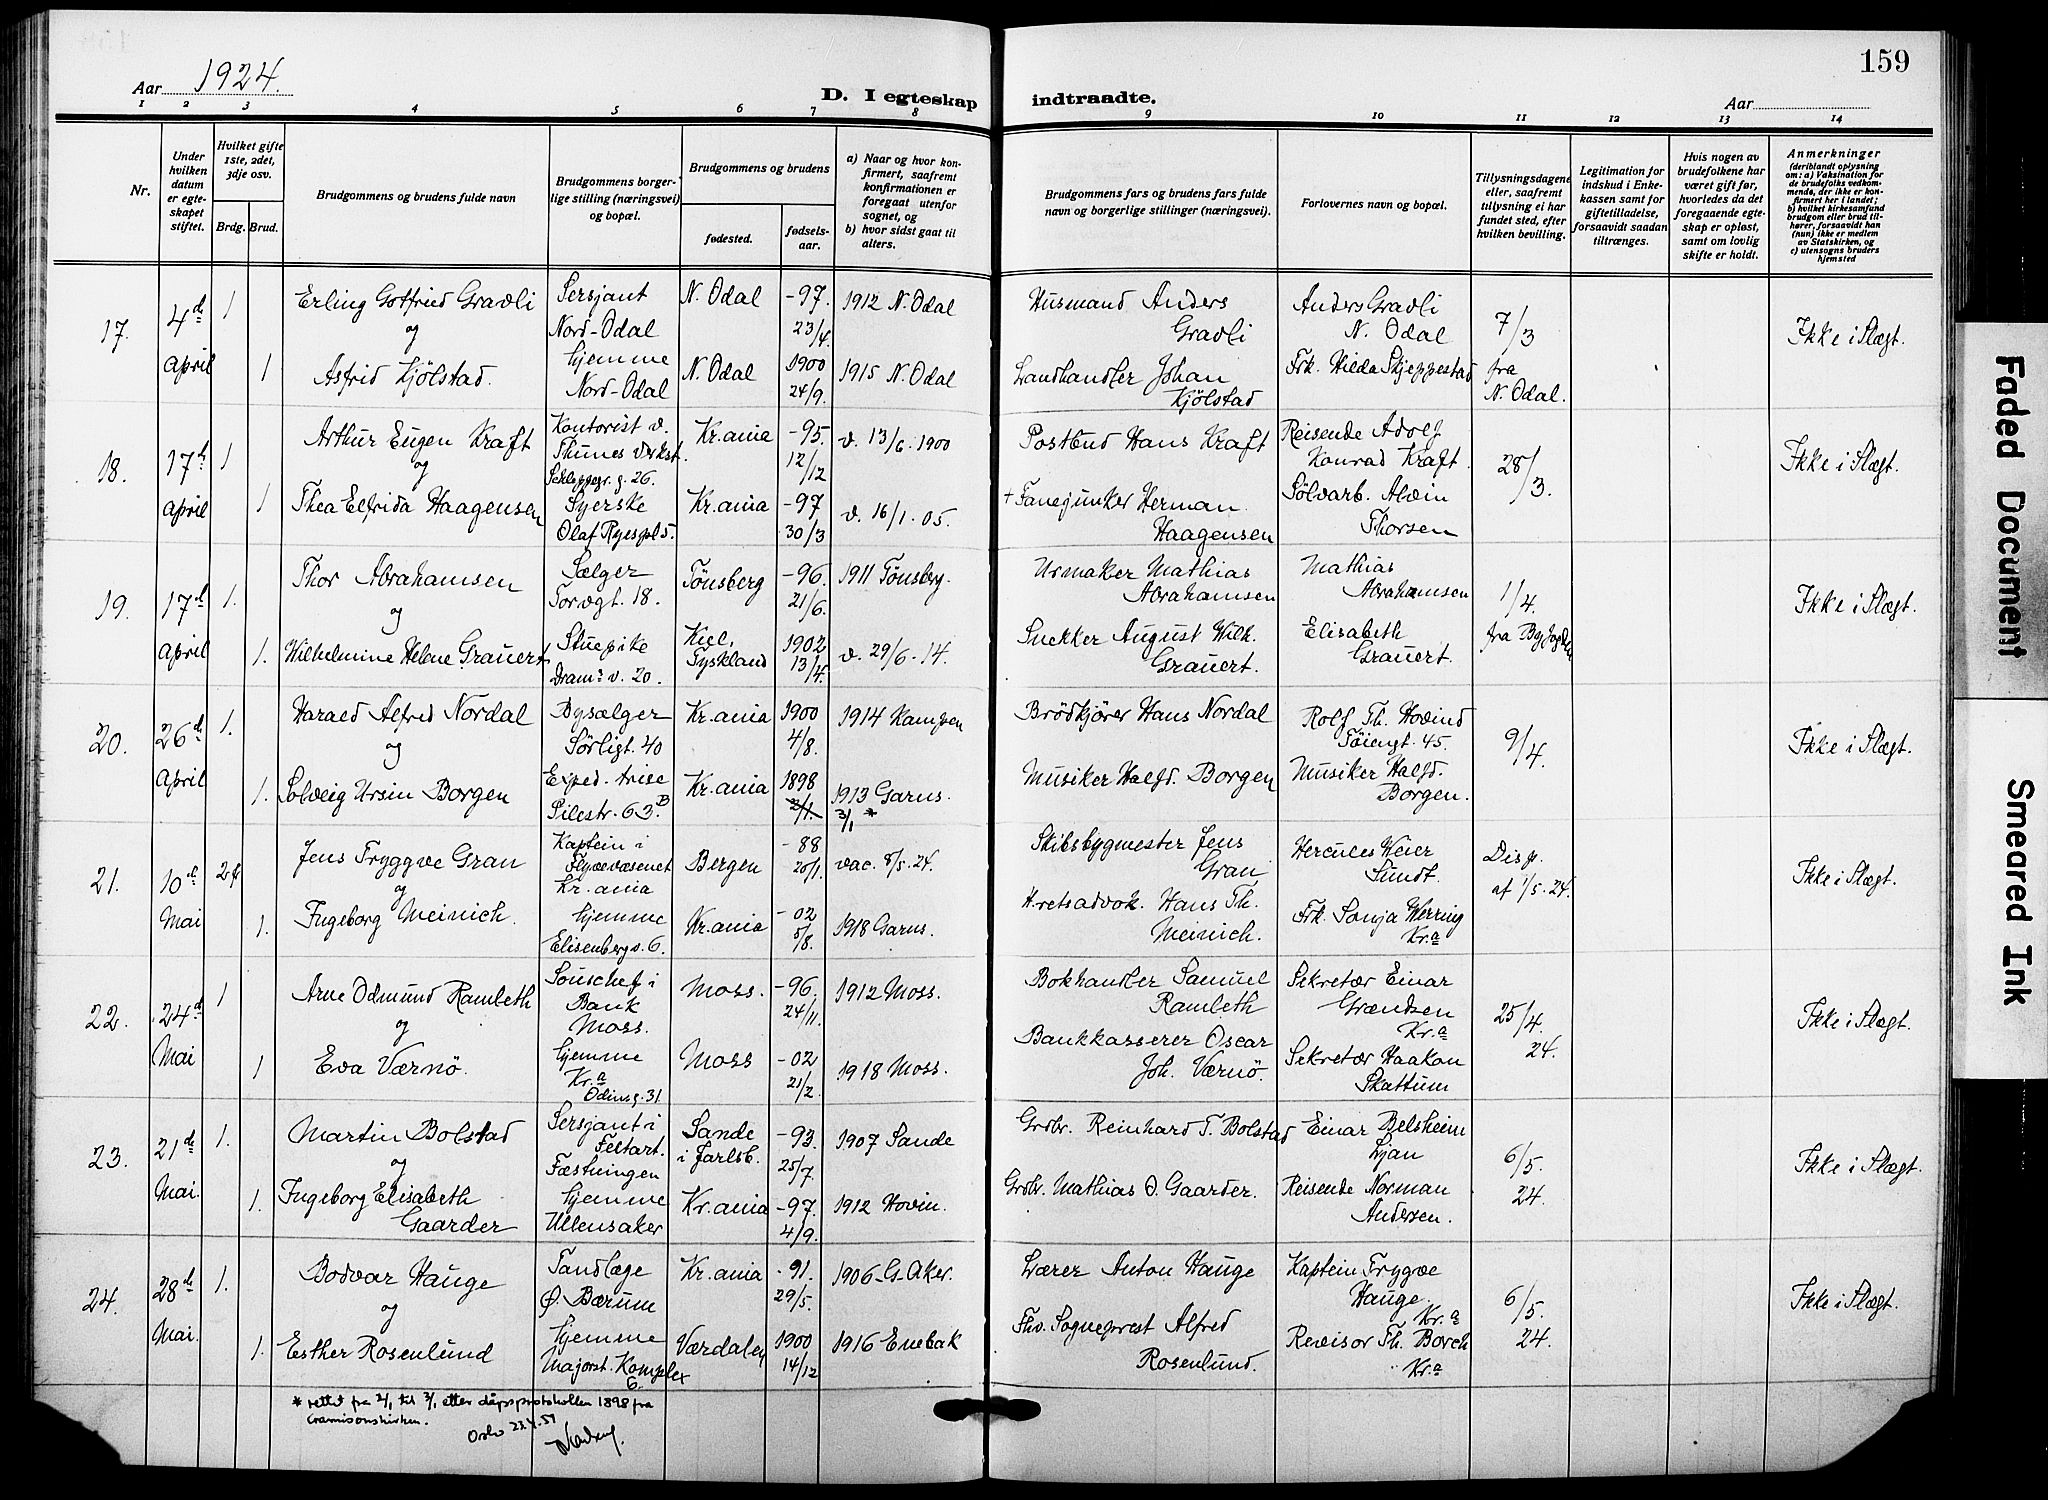 159
Aar 1924.
D. I egteskap indtraadte.
Aar
1 2 3 4 5 6 7 8 9 10 11 12 13 14
Nr.
Under hvilken datum er egteskapet stiftet.
Hvilket gifte 1ste, 2det, 3dje osv.
Brdg. Brud.
Brudgommens og brudens fulde navn
Brudgommens borgerlige stilling (næringsvei) og bopæl.
Brudgommens og brudens
fødested.
fødselsaar.
a) Naar og hvor konfirmert, saafremt konfirmationen er foregaat utenfor sognet, og
b) hvor sidst gaat til alters.
Brudgommens fars og brudens fars fulde navn og borgerlige stillinger (næringsvei).
Forlovernes navn og bopæl.
Tillysningsdagene eller, saafremt tillysning ei har fundet sted, efter hvilken bevilling.
Legitimation for indskud i Enkekassen samt for giftetilladelse, forsaavidt saadan tiltrænges.
Hvis nogen av brudefolkene har været gift før, hvorledes da det foregaaende egteskap er opløst, samt om lovlig skifte er holdt.
Anmerkninger
(deriblandt oplysning om: a) Vaksination for de brudefolks vedkommende, der ikke er konfirmert her i landet; b) hvilket kirkesamfund brudgom eller brud tilhører, forsaavidt han (hun) ikke er medlem av Statskirken, og c) utensogns bruders hjemsted
17. 4de April 1 Erling Gotfried Gravli Sersjant Nord-Odal N. Odal -97. 23/4. 1912 N. Odal Husmand Anders Gravli Anders Gravli N. Odal 7/3 fra N. Odal. Ikke i Slægt.
og
1 Asfrid Kjölstad. hjemme Nord-Odal N. Odal 1900 24/9. 1915 N. Odal Landhandler Johan Kjölstad Frk. Hilda Skjeppestad
18. 17de April 1 Arthur Eugen Kraft Kontorist v. Thunes Verkst. g. 26. Kr.ania -95. 12/12 v. 13/6. 1900 Postbud Hans Kraft Reisende Adolf Konrad Kraft. 28/3. Ikke i Slægt.
og
1 Thea Elfrida Haagensen Syerske Olaf Ryespl 5. Kr.ania -97 30/3 v. 16/1. 05. + Fanejunker Herman Haagensen Sölvarb. Alvin Thorsen
19. 17de April 1. Thor Abrahamsen Sælger Torvgt. 18. Tönsberg -96. 21/6. 1911 Tönsberg. Urmaker Mathias Abrahamsen Mathias Abrahamsen 1/4. Ikke i Slægt.
og
1. Wilhelmine Helene Grauert Stuepike Dramsv. 20. Kiel, Tyskland 1902 13/4. v. 29/6-14. Snekker August Wilh. Grauert. Elisabeth Grauert. fra
20. 26de April 1. Harald Alfred Nordal Bysælger Sörligt. 40 Kr.ania 1900 4/8. 1914 Kampen Brödkjörer Hans Nordal Rolf Th. Hovind Töiengt. 45. 9/4. Ikke i Slægt.
og
1. Solveig Ursin Borgen Exped. trise Pilestr. 63B. Kr.ania 1898 2/1. 1913 Garns. 3/1 * Musiker Halfd. Borgen Musiker Halfd. Borgen.
21. 10de Mai 2 Jens Tryggve Gran Kaptein i Flyvevæsenet Kr.ania Bergen -88 20/1. vac. 8/5. 24. Skibsbygmester Jens Gran Hercules Weier Sundt. Disp. af 7/5. 24. Ikke i Slægt.
og
1. Ingeborg Meinich. hjemme Elisenbergv. 6. Kr.ania -02 5/8. 1918 Garns. H.retsadvok. Hans Th. Meinich. Frk. Sonja Werring Kr.a
22. 24de Mai 1 Arne Odmund Rambeth Souschef i Bank Moss. Moss. -96. 24/11. 1912 Moss. Bokhandler Samuel Rambeth Sekretær Einar Grændsen Kr.a 25/4. 24. Ikke i Slægt.
og
1 Eva Værnö. hjemme Kr.a Odinsg. 31. Moss -02 21/2. 1918 Moss. Bankkasserer Oscar Joh. Værnö. Sekretær Haakon Skattum
23. 21de Mai. 1. Martin Bolstad Sersjant i Feltart. Fæstningen Sande i Jarlsb. -93. 25/7. 1907 Sande Grdbr. Reinhard T. Bolstad Einar Belsheim Ljan 6/5. 24. Ikke i Slægt.
og
1. Ingeborg Elisabeth Gaarder hjemme Ullensaker Kr.ania -97. 4/9. 1912 Hovin. Grdbr. Mathias O. Gaarder. Reisende Norman Andersen.
24. 28de Mai. 1. Bodvar Hauge Tandlæge Ø. Bærum Kr.ania -91. 29/5. 1906 G. Aker. Lærer Anton Hauge Kaptein Trygve Hauge. Kr.a 6/5. 24. Ikke i Slægt.
og
1. Esther Rosenlund hjemme Majorst. Komplex 6. Værdalen 1900 14/12 1916 Enebak Fhv. Sogneprest Alfred Rosenlund. Revisor Th. Borch Kr.a
* rettet fra 2/1 til 3/1 etter dåpsprotokollen 1898 fra
Garnisonskirken. Oslo
Faded Document
Smeared Ink